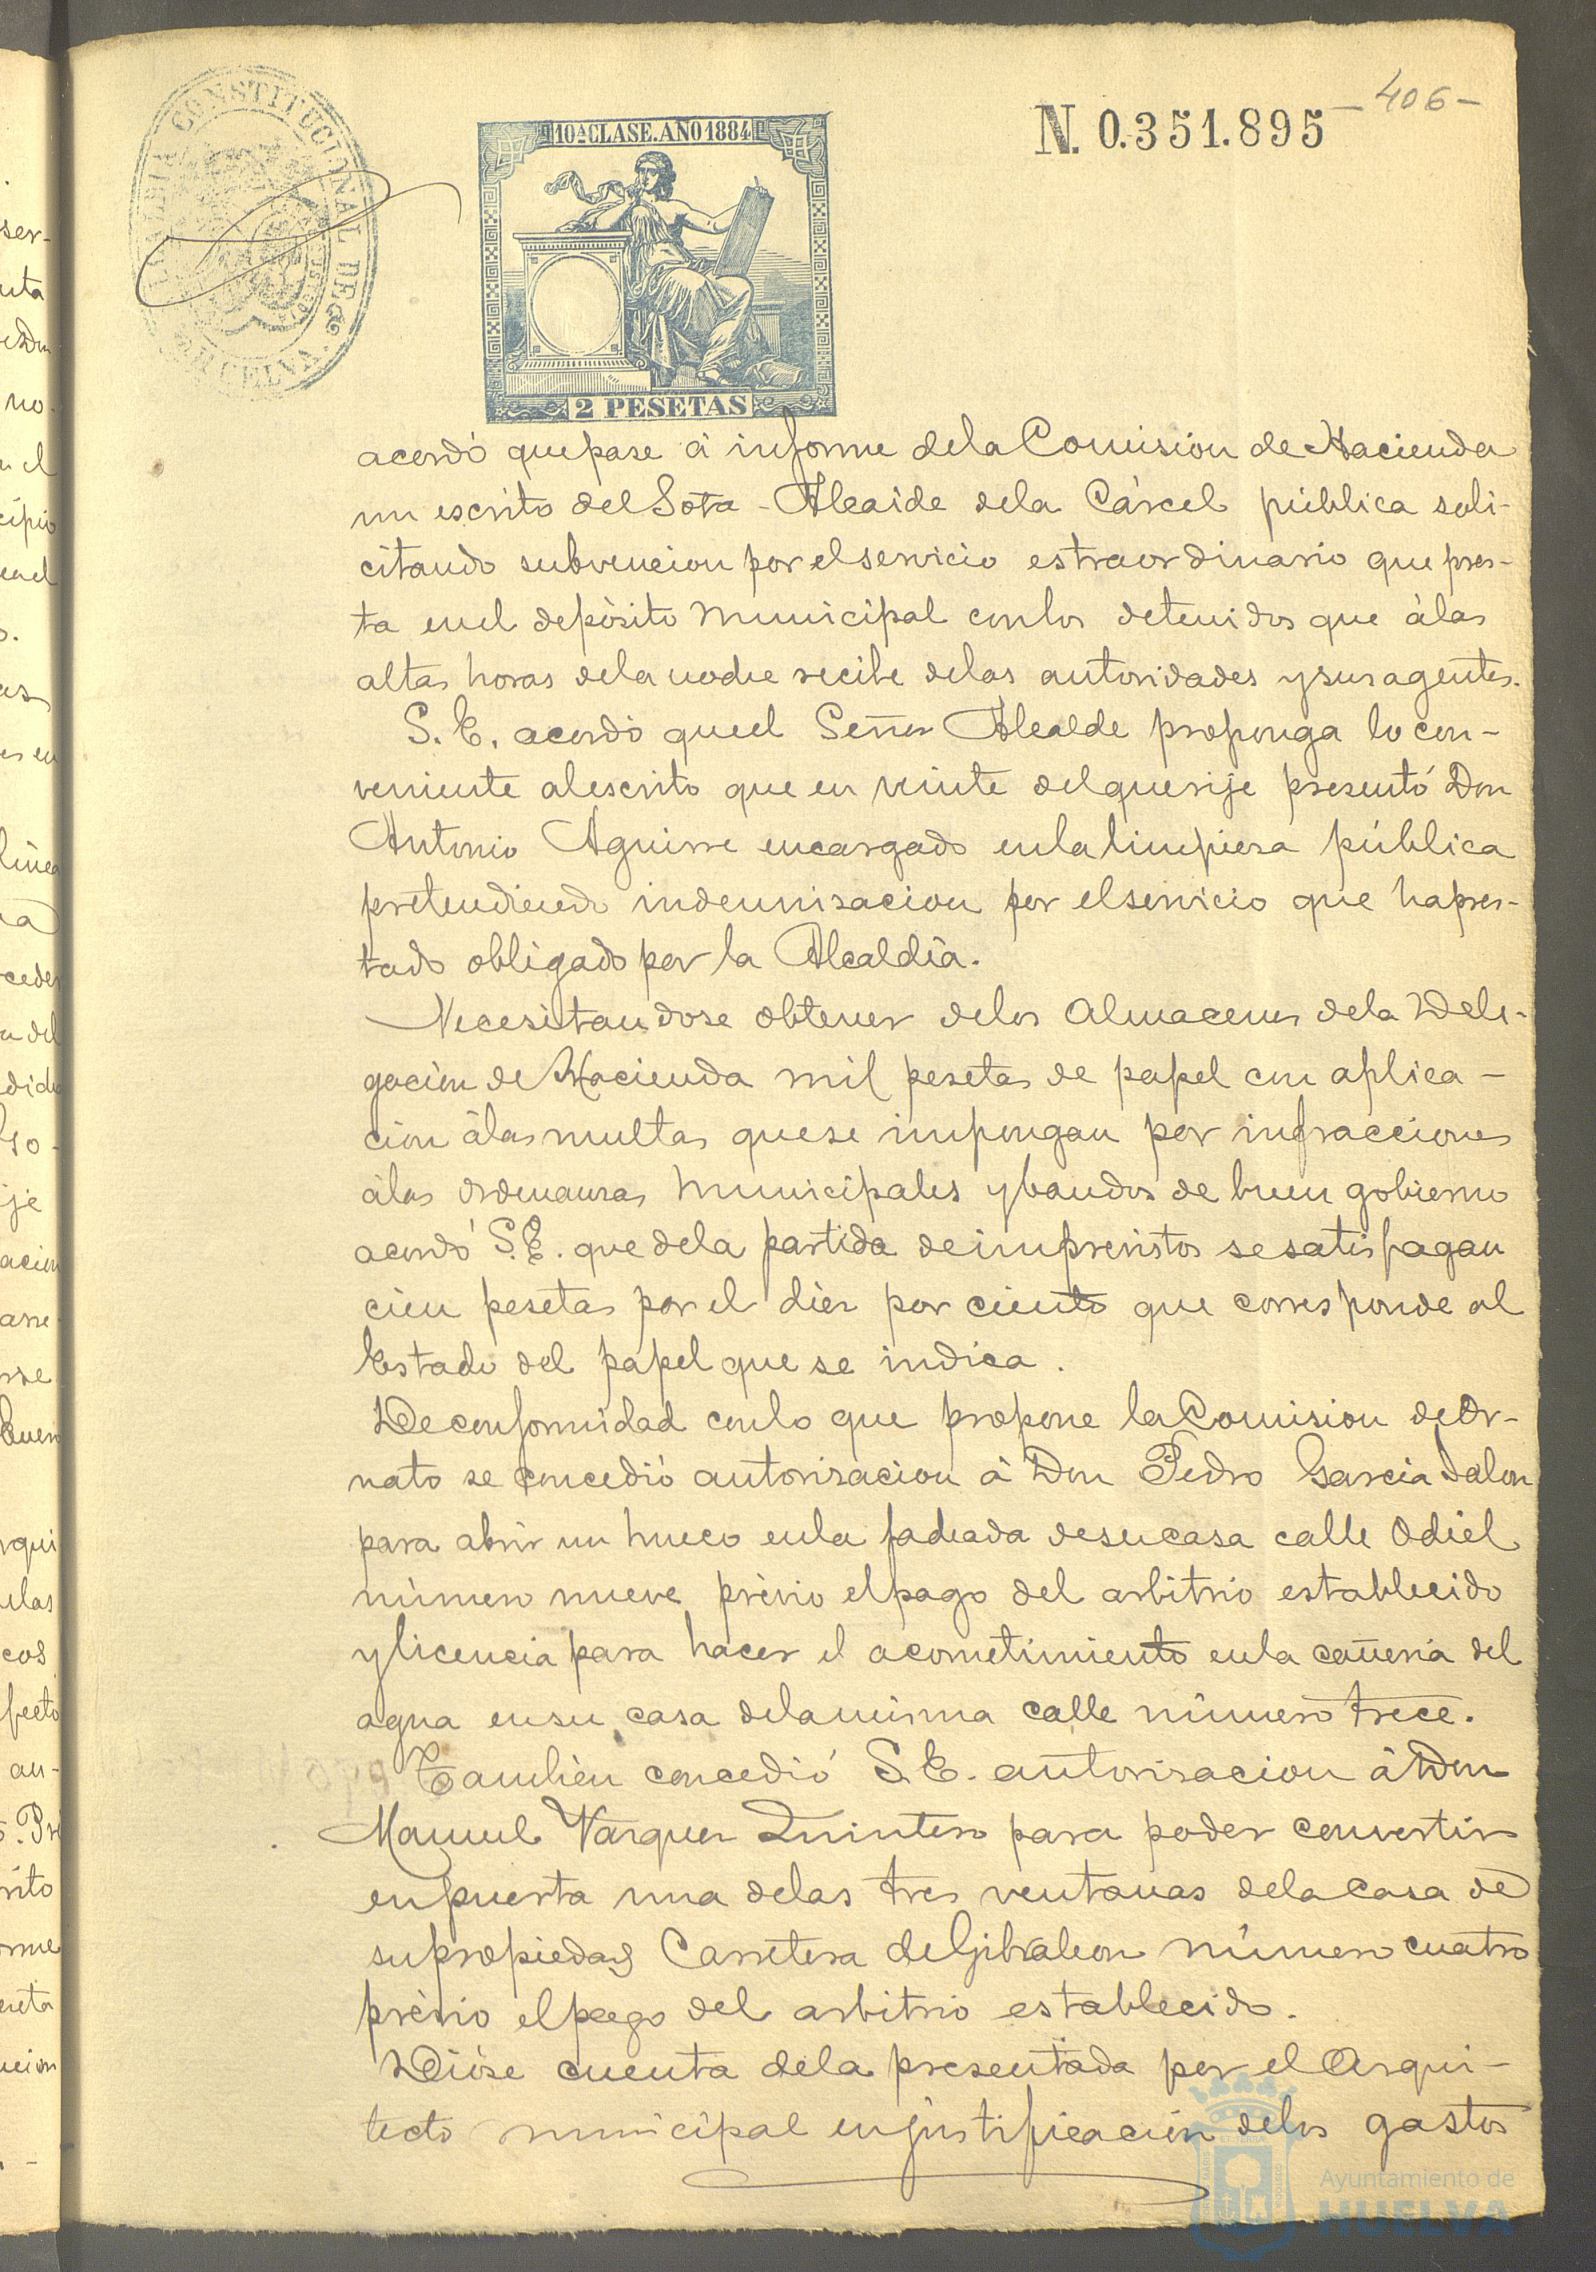 - 406 -
N. 0.351.895
ALCALDIA CONSTITUCIONAL DE HUELVA.
10ª CLASE. AÑO 1884
2 PESETAS
acordó que pase á informe de la Comision de Hacienda
un escrito del Sota-Alcaide de la Cárcel pública soli-
citando subvencion por el servicio estraordinario que pres-
ta en el depósito municipal con los detenidos que á las
altas horas de la noche recibe de las autoridades y sus agentes.
S. E. acordó que el Señor Alcalde proponga lo con-
veniente al escrito que en veinte del que rije presentó Don
Antonio Aguirre encargado en la limpiesa pública
pretendiendo indennisacion por el servicio que ha pres-
tado obligado por la Alcaldía.
Necesitandose obtener de los Almacenes de la Dele-
gación de Hacienda mil pesetas de papel con aplica-
cion á las multas que se impongan por infracciones
á las ordenansas municipales y bandos de buen gobierno
acordó S.E. que de la partida de imprevistos se satisfagan
cien pesetas por el dies por ciento que corresponde al
Estado del papel que se indica.
De conformidad con lo que propone la Comision de Or-
nato se concedió autorisacion á Don Pedro Garcia Jalon
para abrir un hueco en la fachada de su casa calle Odiel
número nueve prévio el pago del arbitrio establecido
y licencia para hacer el acometimiento en la cañeria del
agua en su casa de la misma calle número trece.
Tambien concedió S.E. autorisacion á Don
Manuel Vasques Quintero para poder convertir
en puerta una de las tres ventanas de la casa de
su propiedad Carretera de Gibraleon número cuatro
prévio el pago del arbitrio establecido.
Dióse cuenta de la presentada por el Arqui-
tecto municipal en justificación de los gastos
Ayuntamiento de
HUELVA